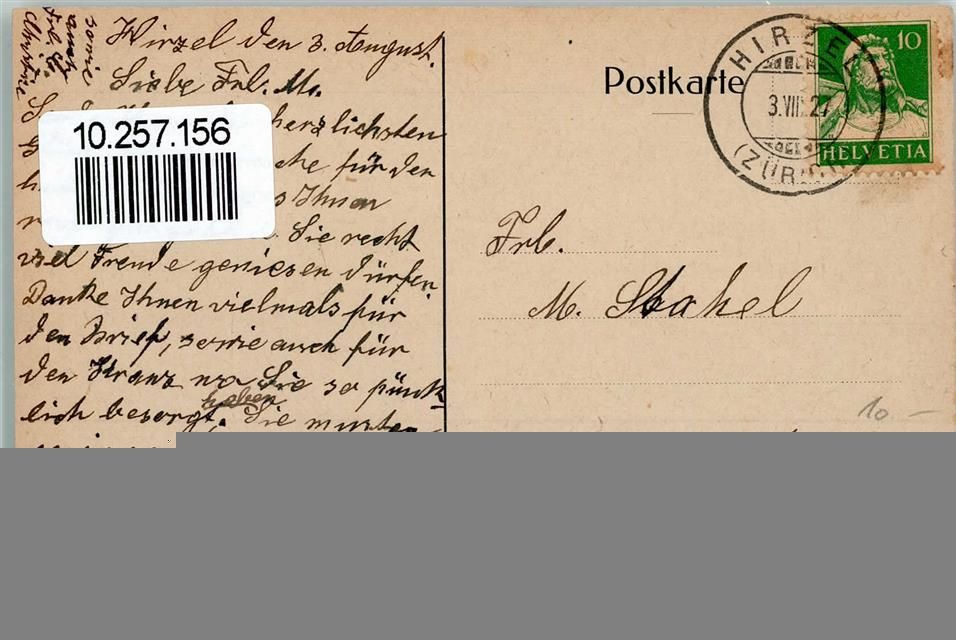 Hirzel den 3. August.
Liebe Frl. M.
herzlichsten
für den
Ihnen
Sie recht
viel Freude geniesen dürfen.
Danke Ihnen vielmals für
den Brief, sowie auch für
den Kranz wo Sie so pünk-
lich besorgt haben. Sie mussten
sowie
Frl. E.
10.257.156
Postkarte
HIRZEL
3.VIII.27
(ZÜRICH)
10
HELVETIA
Frl.
M. Stahel
10.-